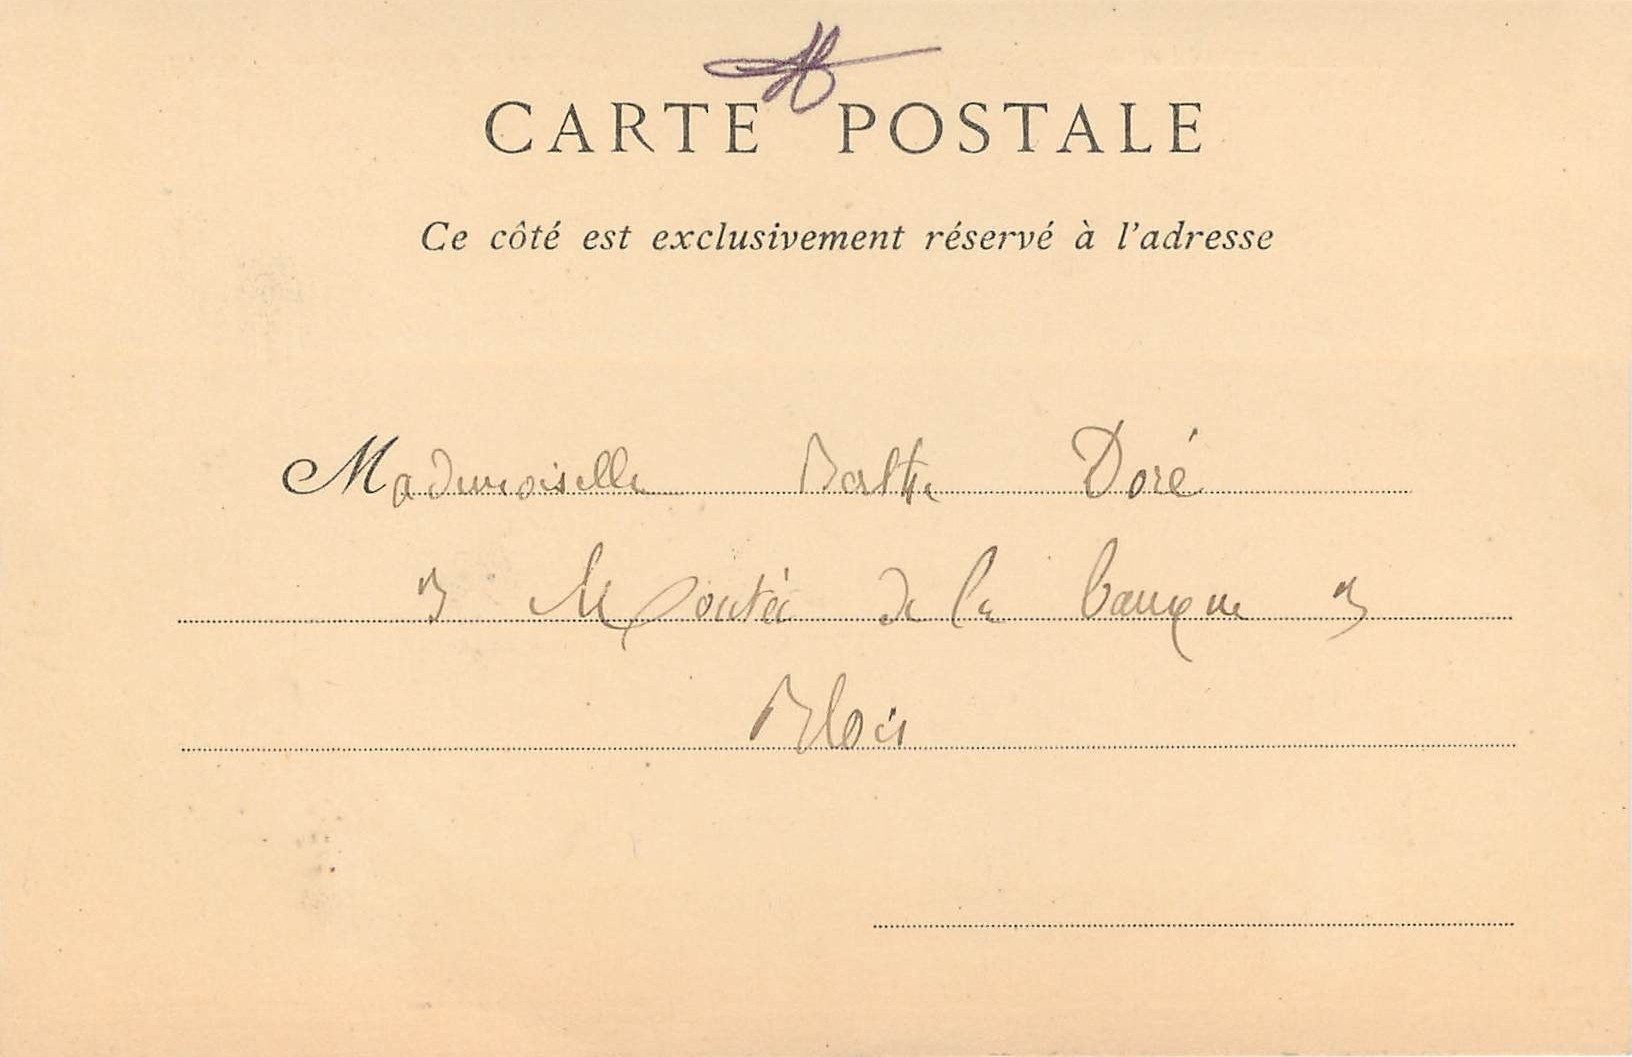 CARTE POSTALE
Ce côté est exclusivement réservé à l'adresse
Mademoiselle Berthe Doré
3 Montée de la banque 3
Blois